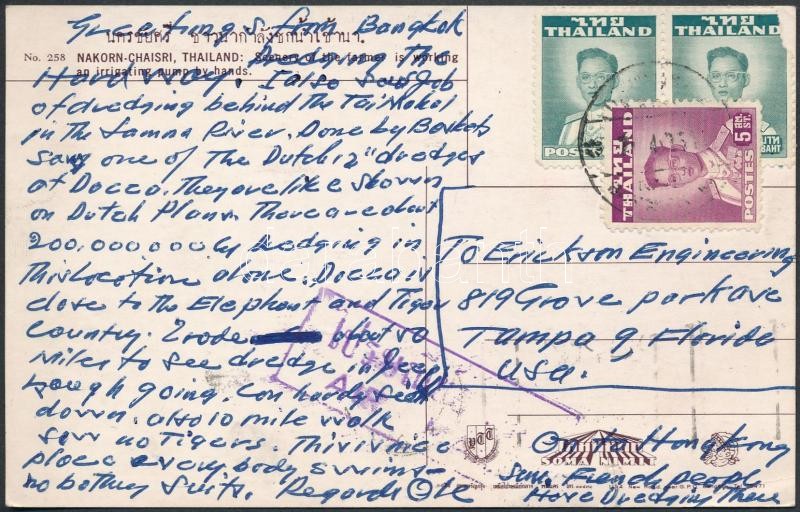 Greetings from Bangkok
นครชัยศรี ชาวนากำลังชักน้ำเข้านา.
No. 258 NAKORN-CHAISRI, THAILAND: Scenery of the farmer is working
an irrigating pump by hands.
Dredging The
Hard Way. I also saw Job
of dredging behind The Taj Mahal
in The Jamna River. Done by Baskets
Saw one of The Dutch 12" dredges
at Dacca. They are like shown
on Dutch Plans. There are about
200,000,000 dredging in
This Location alone. Dacca is
close to the Elephant and Tiger
Country. I rode about 50
miles to see dredge in Jeep
rough going. Can hardly
down. also 10 mile walk
saw no Tigers. This is nice
place every body swims-
no bathing Suits. Regards
ไทย
THAILAND
POSTES
ไทย
THAILAND
BAHT
ไทย
THAILAND
5 สต. ST.
POSTES
TO Erickson Engineering
819 Grove park ave
Tampa 9, Florida
USA.
On to Hong Kong
French people
Have Dredging There
SOMA NIMIT
darabanth